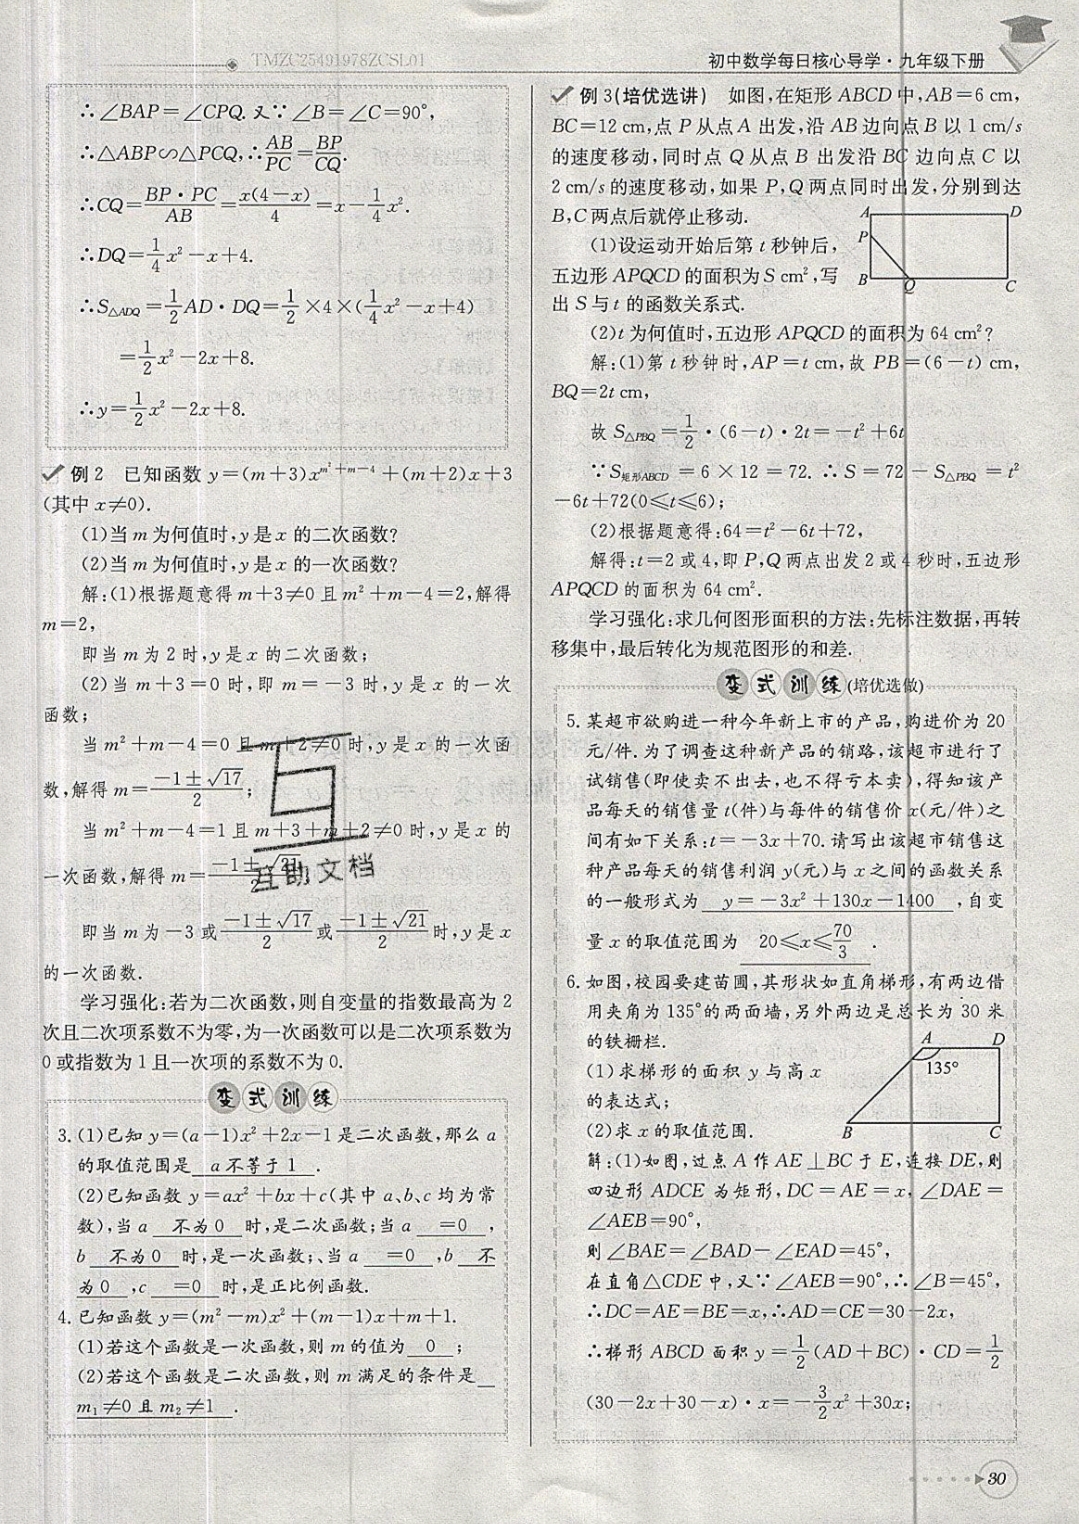 TMZC25491978ZCSL01
初中数学每日核心导学·九年级下册
∴∠BAP=∠CPQ.又∵∠B=∠C=90°,
∴△ABP∽△PCQ,∴AB/PC=BP/CQ.
∴CQ=BP·PC/AB=x(4-x)/4=x-1/4x².
∴DQ=1/4x²-x+4.
∴S△ADQ=1/2AD·DQ=1/2×4×(1/4x²-x+4)
=1/2x²-2x+8.
∴y=1/2x²-2x+8.
例2 已知函数y=(m+3)x^(m²+m-4)+(m+2)x+3
(其中x≠0).
(1)当m为何值时,y是x的二次函数?
(2)当m为何值时,y是x的一次函数?
解:(1)根据题意得m+3≠0且m²+m-4=2,解得
m=2,
即当m为2时,y是x的二次函数;
(2)当m+3=0时,即m=-3时,y是x的一次
函数;
当m²+m-4=0且m+2≠0时,y是x的一次函
数,解得m=(-1±√17)/2;
当m²+m-4=1且m+3+m+2≠0时,y是x的
一次函数,解得m=(-1±√21)/2
即当m为-3或(-1±√17)/2或(-1±√21)/2时,y是x
的一次函数.
学习强化:若为二次函数,则自变量的指数最高为2
次且二次项系数不为零,为一次函数可以是二次项系数为
0或指数为1且一次项的系数不为0.
变式训练
3.(1)已知y=(a-1)x²+2x-1是二次函数,那么a
的取值范围是 a不等于1 .
(2)已知函数y=ax²+bx+c(其中a、b、c均为常
数),当a 不为0 时,是二次函数;当a =0 ,
b 不为0 时,是一次函数;、当a =0 ,b 不
为0 ,c =0 时,是正比例函数.
4.已知函数y=(m²-m)x²+(m-1)x+m+1.
(1)若这个函数是一次函数,则m的值为 0 ;
(2)若这个函数是二次函数,则m满足的条件是
m₁≠0且m₂≠1 .
例3(培优选讲) 如图,在矩形ABCD中,AB=6 cm,
BC=12 cm,点P从点A出发,沿AB边向点B以1 cm/s
的速度移动,同时点Q从点B出发沿BC边向点C以
2 cm/s的速度移动,如果P,Q两点同时出发,分别到达
B,C两点后就停止移动.
(1)设运动开始后第t秒钟后,
五边形APQCD的面积为S cm²,写
出S与t的函数关系式.
A
D
P
B
Q
C
(2)t为何值时,五边形APQCD的面积为64 cm²?
解:(1)第t秒钟时,AP=t cm,故PB=(6-t) cm,
BQ=2t cm,
故S△PBQ=1/2·(6-t)·2t=-t²+6t
∵S矩形ABCD=6×12=72.∴S=72-S△PBQ=t²
-6t+72(0≤t≤6);
(2)根据题意得:64=t²-6t+72,
解得:t=2或4,即P,Q两点出发2或4秒时,五边形
APQCD的面积为64 cm².
学习强化:求几何图形面积的方法:先标注数据,再转
移集中,最后转化为规范图形的和差.
变式训练(培优选做)
5.某超市欲购进一种今年新上市的产品,购进价为20
元/件.为了调查这种新产品的销路,该超市进行了
试销售(即使卖不出去,也不得亏本卖),得知该产
品每天的销售量t(件)与每件的销售价x(元/件)之
间有如下关系:t=-3x+70.请写出该超市销售这
种产品每天的销售利润y(元)与x之间的函数关系
的一般形式为 y=-3x²+130x-1400 ,自变
量x的取值范围为 20≤x≤70/3 .
6.如图,校园要建苗圃,其形状如直角梯形,有两边借
用夹角为135°的两面墙,另外两边是总长为30米
的铁栅栏.
(1)求梯形的面积y与高x
的表达式;
(2)求x的取值范围.
A
D
135°
B
C
解:(1)如图,过点A作AE⊥BC于E,连接DE,则
四边形ADCE为矩形,DC=AE=x,∠DAE=
∠AEB=90°,
则∠BAE=∠BAD-∠EAD=45°,
在直角△CDE中,又∵∠AEB=90°,∴∠B=45°,
∴DC=AE=BE=x,∴AD=CE=30-2x,
∴梯形ABCD面积y=1/2(AD+BC)·CD=1/2
(30-2x+30-x)·x=-3/2x²+30x;
互助文档
30